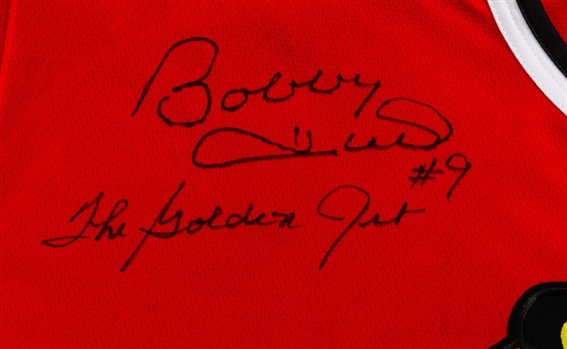 Bobby
Hull
#9
The Golden Jet